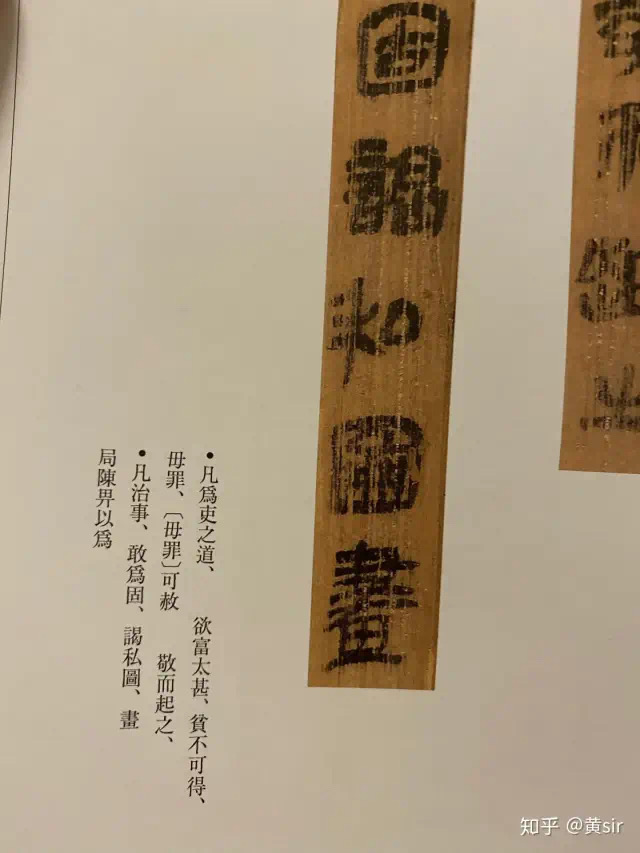 固謁私圖畫
•凡爲吏之道、　欲富太甚、貧不可得、
毋罪、〔毋罪〕可赦　敬而起之、
•凡治事、敢爲固、謁私圖、畫
局陳畀以爲
知乎 @黄sir